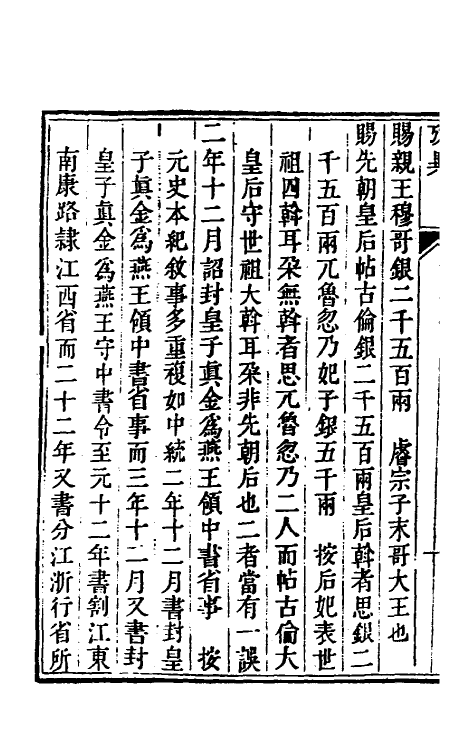 賜親王穆哥銀二千五百兩　睿宗子末哥大王也
賜先朝皇后帖古倫銀二千五百兩皇后斡者思銀二
千五百兩兀魯忽乃妃子銀五千兩　按后妃表世
祖四斡耳朶無斡者思兀魯忽乃二人而帖古倫大
皇后守世祖大斡耳朶非先朝后也二者當有一誤
二年十二月詔封皇子眞金爲燕王領中書省事　按
元史本紀敘事多重複如中統二年十二月書封皇
子眞金爲燕王領中書省事而三年十二月又書封
皇子眞金爲燕王守中書令至元十二年書割江東
南康路隷江西省而二十二年又書分江浙行省所